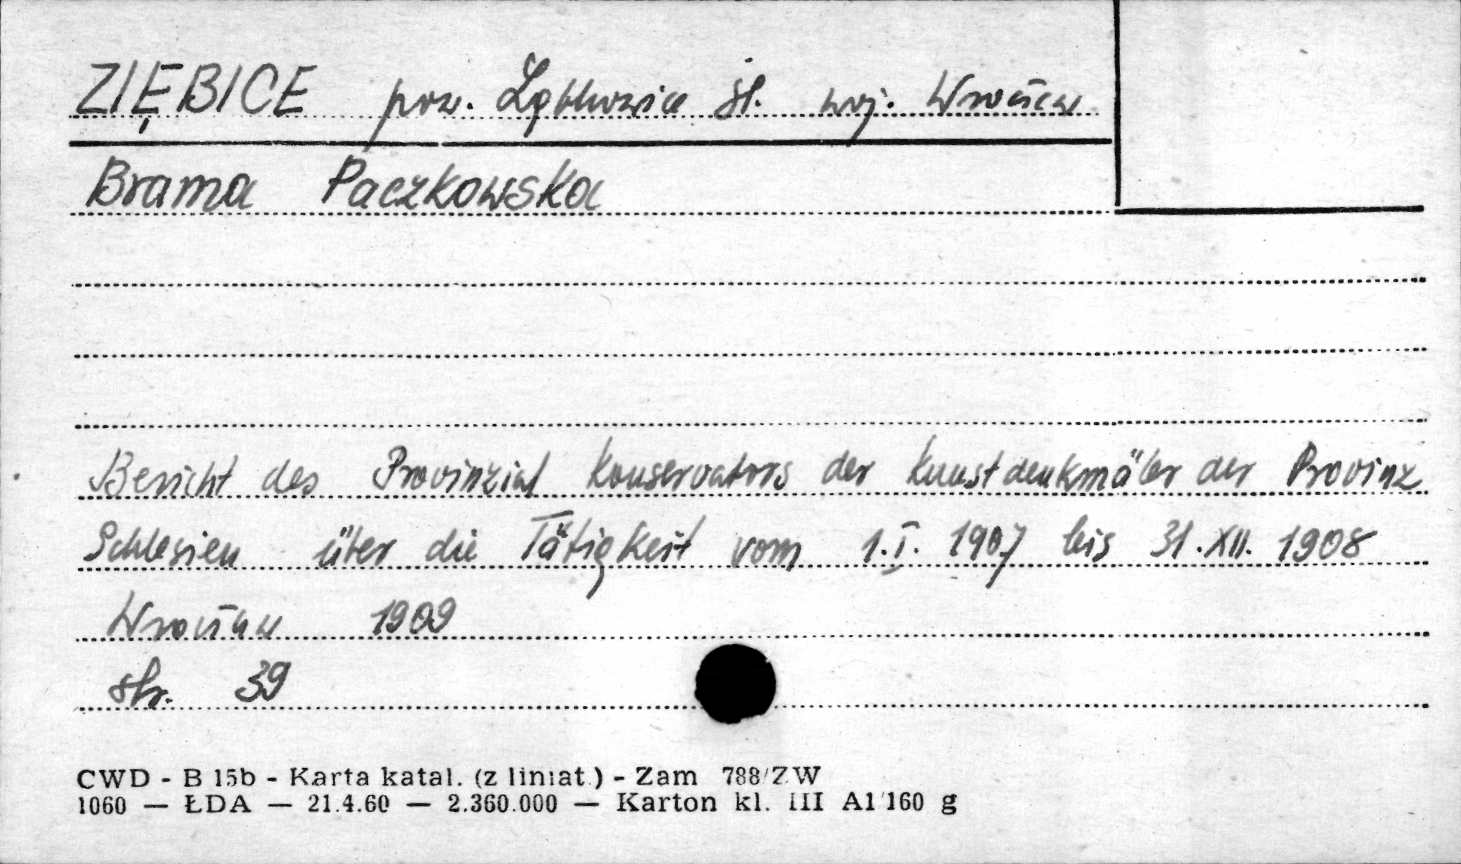 ZIĘBICE pow. Ząbkowice śl. woj. Wrocław
Brama Paczkowska
Bericht des Provinzial Konservators der Kunstdenkmäler der Provinz
Schlesien über die Tätigkeit vom 1.I. 1907 bis 31.XII. 1908
Wrocław 1909
str. 39
CWD - B 15b - Karta katal. (z liniat.) - Zam 788/ZW
1060 — ŁDA — 21.4.60 — 2.360.000 — Karton kl. III A1/160 g